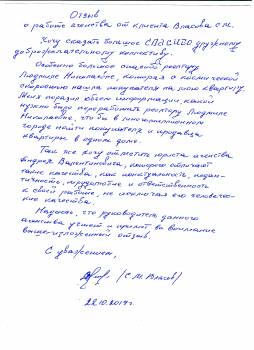 Отзыв
о работе агенства от клиента Власова С.М.
Хочу сказать большое СПАСИБО дружному
доброжелательному коллективу.
Особенно большое спасибо риелтору
Людмиле Николаевне, которая с космической
скоростью нашла покупателя на мою квартиру.
Меня поразил объем информации, какой
нужно было переработать риелтору Людмиле
Николаевне, что бы в многомиллионном
городе найти покупателя и продавца
квартиры в одном доме.
Так же хочу отметить юриста агенства
Андрея Валентиновича, которого отличают
такие качества, как пунктуальность, педан-
тичность, трудолюбие и ответственность
к своей работе, не исключая его человечес-
кие качества.
Надеюсь, что руководитель данного
агенства учтет и примет во внимание
выше-изложенный отзыв.
С уважением,
/С.М. Власов/
22.10.2017г.